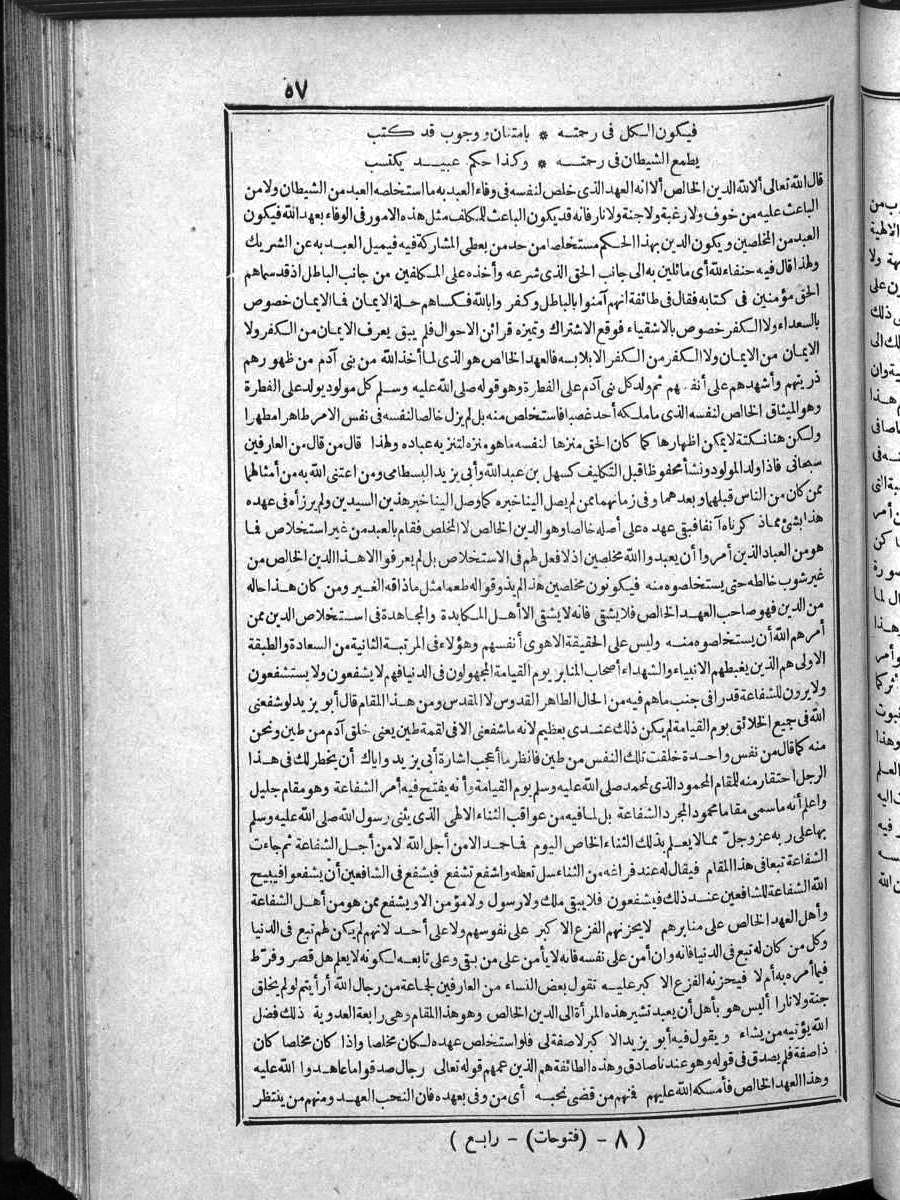 ٥٧
فيكون الكل فى رحمته * بامتنان ووجوب قد كتب
يطمع الشيطان فى رحمته * وكذا حكم عبيد يكتسب
قال الله تعالى ألا لله الدين الخالص ألا انه العهد الذى خلص لنفسه فى وفاء العبد به ما استخلصه العبد من الشيطان ولا من
الباعث عليه من خوف ولا رغبة ولا جنة ولا نار فانه قد يكون الباعث للمكلف مثل هذه الامور فى الوفاء بعهد الله فيكون
العبد من المخلصين ويكون الدين بهذا الحكم مستخلصا من حد من يعطى المشاركة فيه فيميل العبد به عن الشريك
ولهذا قال فيه حنفاء لله أى مائلين به الى جانب الحق الذى شرعه وأخذه على المكلفين من جانب الباطل اذ قد سماهم
الحق مؤمنين فى كتابه فقال فى طائفة انهم آمنوا بالباطل وكفروا بالله فكساهم حلة الايمان فما الايمان خصوص
بالسعداء ولا الكفر خصوص بالاشقياء فوقع الاشتراك وتميزه قرائن الاحوال فلم يبق يعرف الايمان من الكفر ولا
الايمان من الايمان ولا الكفر من الكفر الا بلابسه فالعهد الخالص هو الذى لما أخذ الله من بنى آدم من ظهورهم
ذريتهم وأشهدهم على أنفسهم ثم ولد كل بنى آدم على الفطرة وهو قوله صلى الله عليه وسلم كل مولود يولد على الفطرة
وهو الميثاق الخالص لنفسه الذى ما ملكه أحد غصبا فاستخلص منه بل لم يزل خالصا لنفسه فى نفس الامر طاهرا مطهرا
ولكن هنا نكتة لا يمكن اظهارها كما كان الحق منزها لنفسه ما هو منزه لتنزيه عباده ولهذا قال من قال من العارفين
سبحانى فاذا ولد المولود ونشأ محفوظا قبل التكليف كسهل بن عبد الله وأبى يزيد البسطامى ومن اعتنى الله به من أمثالهما
ممن كان من الناس قبلهما وبعدهما وفى زمانهما ممن لم يصل الينا خبره كما وصل الينا خبر هذين السيدين ولم يرزأه فى عهده
هذا بشئ مما ذكرناه آنفا فبقى عهده على أصله خالصا وهو الدين الخالص لا المخلص فقام بالعبد من غير استخلاص فما
هو من العباد الذين أمروا أن يعبدوا الله مخلصين اذ لا فعل لهم فى الاستخلاص بل لم يعرفوا الا هذا الدين الخالص من
غير شوب خالطه حتى يستخلصوه منه فيكونون مخلصين هذا لم يذوقوا له طعما مثل ما ذاقه الغير ومن كان هذا حاله
من الدين فهو صاحب العهد الخالص فلا يشقى فانه لا يشقى الا أهل المكابدة والمجاهدة فى استخلاص الدين ممن
أمرهم الله أن يستخلصوه منه وليس على الحقيقة الا هوى أنفسهم وهؤلاء فى المرتبة الثانية من السعادة والطبقة
الاولى هم الذين يغبطهم الانبياء والشهداء أصحاب المنابر يوم القيامة المجهولون فى الدنيا فهم لا يشفعون ولا يستشفعون
ولا يرون للشفاعة قدرا فى جنب ما هم فيه من الحال الطاهر القدوس لا المقدس ومن هذا المقام قال أبو يزيد لو شفعنى
الله فى جميع الخلائق يوم القيامة لم يكن ذلك عندى بعظيم لانه ما شفعنى الا فى لقمة طين يعنى خلق آدم من طين ونحن
منه كما قال من نفس واحدة خلقت تلك النفس من طين فانظر ما أعجب اشارة أبى يزيد واياك أن يخطر لك فى هذا
الرجل احتقار منه للمقام المحمود الذى لمحمد صلى الله عليه وسلم يوم القيامة وأنه يفتتح فيه أمر الشفاعة وهو مقام جليل
واعلم أنه ما سمى مقاما محمودا لمجرد الشفاعة بل لما فيه من عواقب الثناء الالهى الذى يثنى رسول الله صلى الله عليه وسلم
بها على ربه عز وجل مما لا يعلم بذلك الثناء الخاص اليوم فما حمد الا من أجل الله لا من أجل الشفاعة ثم جاءت
الشفاعة تبعا فى هذا المقام فيقال له عند فراغه من الثناء سل تعطه واشفع تشفع فيشفع فى الشافعين أن يشفعوا فيبيح
الله الشفاعة للشافعين عند ذلك فيشفعون فلا يبقى ملك ولا رسول ولا مؤمن الا ويشفع ممن هو من أهل الشفاعة
وأهل العهد الخالص على منابرهم لا يحزنهم الفزع الاكبر على نفوسهم ولا على أحد لانهم لم يكن لهم تبع فى الدنيا
وكل من كان له تبع فى الدنيا فانه وان أمن على نفسه فانه لا يأمن على من بقى وعلى تابعه لكونه لا يعلم هل قصر وفرّط
فيما أمره به أم لا فيحزنه الفزع الاكبر عليه تقول بعض النساء من العارفين لجماعة من رجال الله أرأيتم لو لم يخلق
جنة ولا نارا أليس هو بأهل أن يعبد تشير هذه المرأة الى الدين الخالص وهو هذا المقام وهى رابعة العدوية ذلك فضل
الله يؤتيه من يشاء ويقول فيه أبو يزيد الاكبر لا صفة لى فلو استخلص عهده لكان مخلصا واذا كان مخلصا كان
ذا صفة فلم يصدق فى قوله وهو عندنا صادق وهذه الطائفة هم الذين عمهم قوله تعالى رجال صدقوا ما عاهدوا الله عليه
وهذا العهد الخالص فأمسكه الله عليهم فمنهم من قضى نحبه أى من وفى بعهده فان النحب العهد ومنهم من ينتظر
( ٨ - (فتوحات) - رابع )